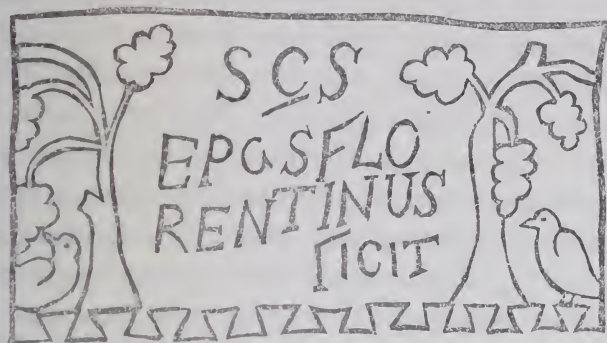 SCS
EPGSFLO
RENTINUS
ΓICIT